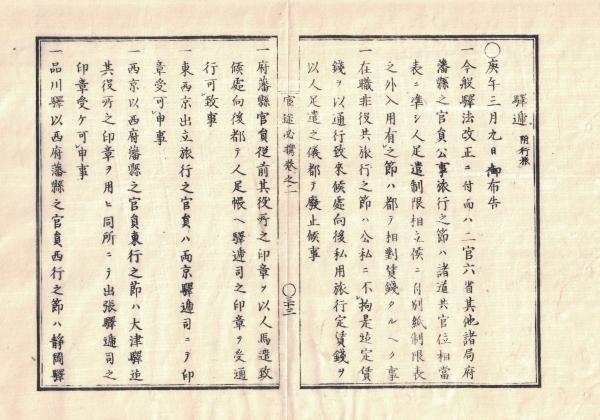 驛遞 附行旅
◯庚午三月九日御布告
一今般驛法改正ニ付而ハ二官六省其他諸局府
藩縣之官員公事旅行之節ハ諸道共官位相當
表ニ準シ人足遣制限相立候ニ付別紙制限表
之外入用有之節ハ都テ相對賃錢タルヘク事
一在職非役共旅行之節ハ公私ニ不拘是迠定賃
錢ヲ以通行致來候處向後私用旅行定賃錢ヲ
以人足遣之儀都テ廢止候事
官途必携巻之一
◯三十三
一府藩縣官員從前其役所之印章ヲ以人馬遣致
候處向後都テ人足帳ヘ驛遞司之印章ヲ受通
行可致事
一東西京出立旅行之官員ハ兩京驛遞司ニヲヰ印
章受可申事
一西京以西府藩縣之官員東行之節ハ大津驛迠
其役所之印章ヲ用ヒ同所ニヲヰ出張驛遞司之
印章受ケ可申事
一品川驛以西府藩縣之官員西行之節ハ靜岡驛